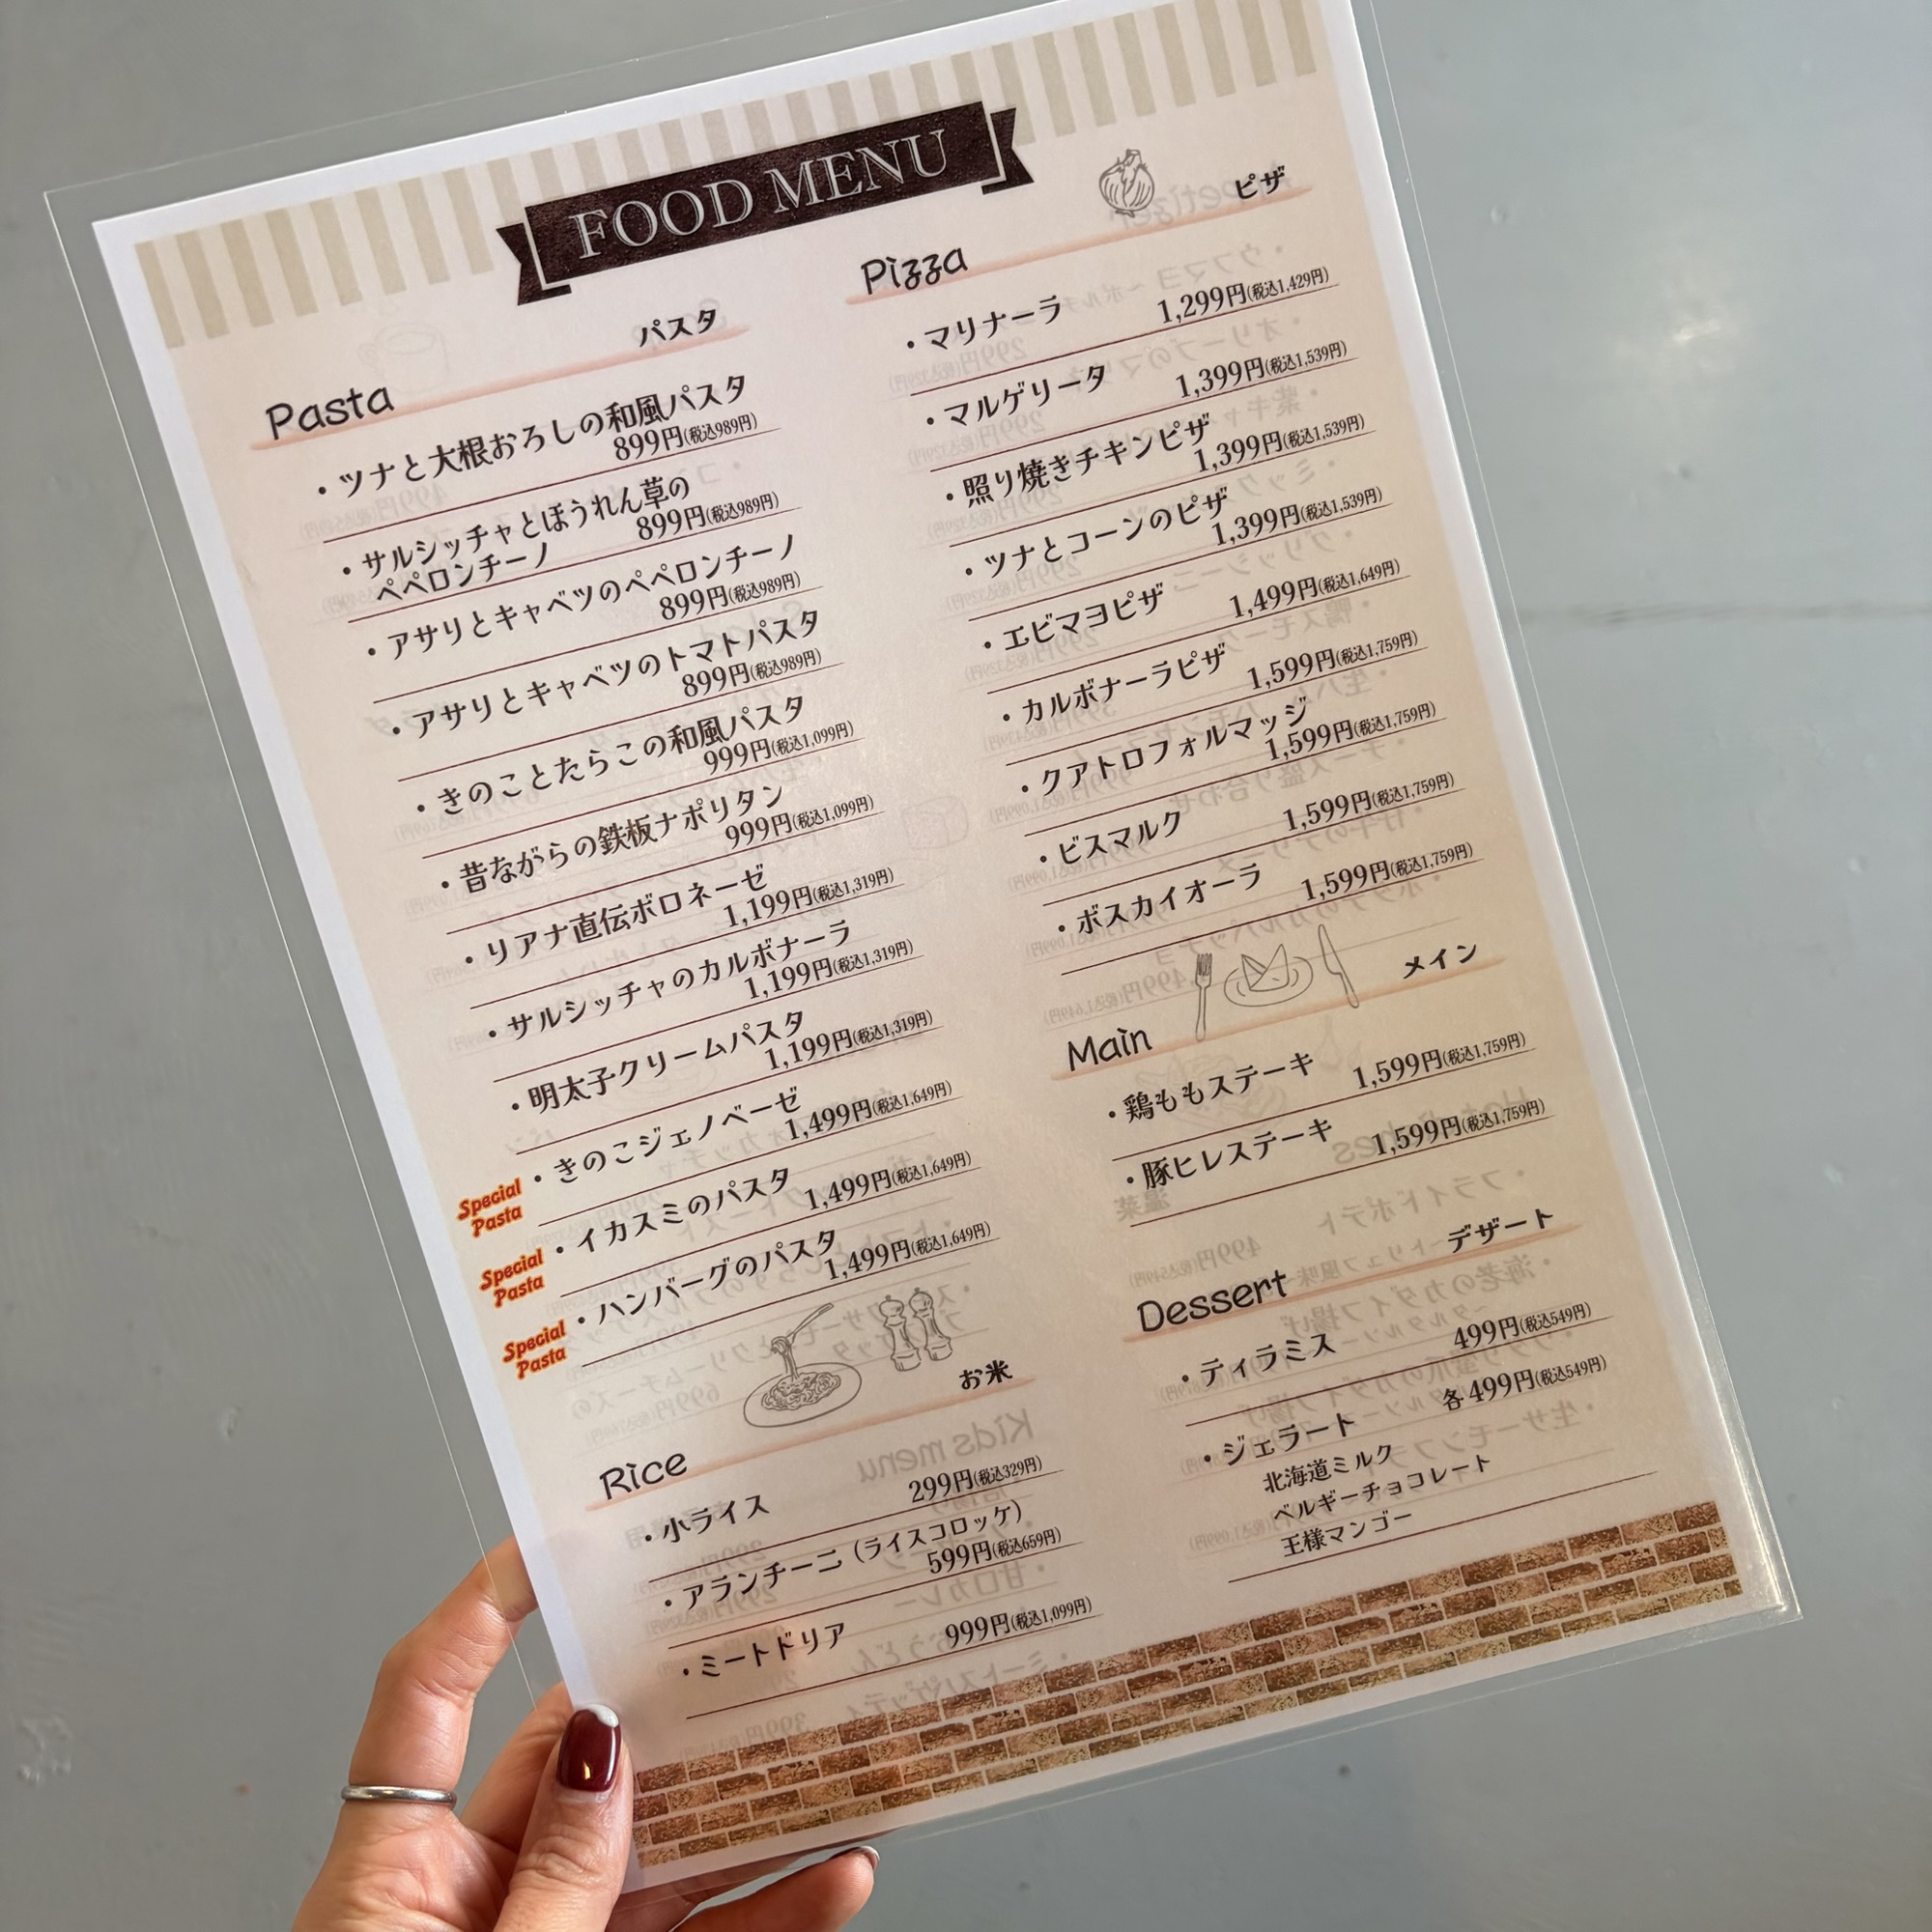 FOOD MENU
Pasta
パスタ
・ツナと大根おろしの和風パスタ
899円(税込989円)
・サルシッチャとほうれん草の
ペペロンチーノ
899円(税込989円)
・アサリとキャベツのペペロンチーノ
899円(税込989円)
・アサリとキャベツのトマトパスタ
899円(税込989円)
・きのことたらこの和風パスタ
999円(税込1,099円)
・昔ながらの鉄板ナポリタン
999円(税込1,099円)
・リアナ直伝ボロネーゼ
1,199円(税込1,319円)
・サルシッチャのカルボナーラ
1,199円(税込1,319円)
・明太子クリームパスタ
1,199円(税込1,319円)
Special
Pasta
・きのこジェノベーゼ
1,499円(税込1,649円)
Special
Pasta
・イカスミのパスタ
1,499円(税込1,649円)
Special
Pasta
・ハンバーグのパスタ
1,499円(税込1,649円)
Rice
お米
・小ライス 299円(税込329円)
・アランチーニ(ライスコロッケ)
599円(税込659円)
・ミートドリア 999円(税込1,099円)
Pizza
ピザ
・マリナーラ 1,299円(税込1,429円)
・マルゲリータ 1,399円(税込1,539円)
・照り焼きチキンピザ
1,399円(税込1,539円)
・ツナとコーンのピザ
1,399円(税込1,539円)
・エビマヨピザ 1,499円(税込1,649円)
・カルボナーラピザ
1,599円(税込1,759円)
・クアトロフォルマッジ
1,599円(税込1,759円)
・ビスマルク 1,599円(税込1,759円)
・ボスカイオーラ 1,599円(税込1,759円)
Main
メイン
・鶏ももステーキ 1,599円(税込1,759円)
・豚ヒレステーキ 1,599円(税込1,759円)
Dessert
デザート
・ティラミス 499円(税込549円)
・ジェラート 各499円(税込549円)
北海道ミルク
ベルギーチョコレート
王様マンゴー